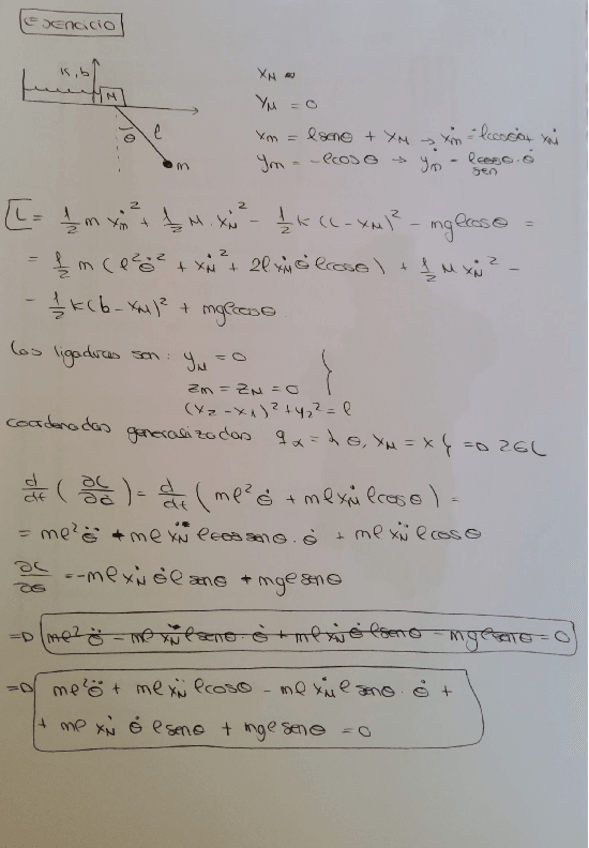 Exercicio
K, b
M
l
θ
m
x_M
y_M = 0
x_m = l senθ + x_M → ẋ_m = l cosθ θ̇ + ẋ_M
y_m = -l cosθ → ẏ_m = l sen θ · θ̇
L = 1/2 m ẋ_m² + 1/2 M · ẋ_M² - 1/2 k (L - x_M)² - mg l cosθ =
= 1/2 m (l² θ̇² + ẋ_M² + 2l ẋ_M θ̇ l cosθ) + 1/2 M ẋ_M² -
- 1/2 k (b - x_M)² + mg l cosθ
Las ligaduras son: y_M = 0
z_m = z_M = 0
(x_2 - x_1)² + y_2² = l
coordenadas generalizadas q_α = { θ, x_M = x } => 2GL
d/dt (∂L/∂θ̇) = d/dt (m l² θ̇ + m l ẋ_M l cosθ) =
= m l² θ̈ + m l ẋ_M l senθ · θ̇ + m l ẍ_M l cosθ
∂L/∂θ = -m l ẋ_M θ̇ l senθ + mg l senθ
=> m l² θ̈ - m l ẋ_M l senθ · θ̇ + m l ẋ_M θ̇ l senθ - mg l senθ = 0
=> m l² θ̈ + m l ẍ_M l cosθ - m l ẋ_M l senθ · θ̇ +
+ m l ẋ_M θ̇ l senθ + mg l senθ = 0